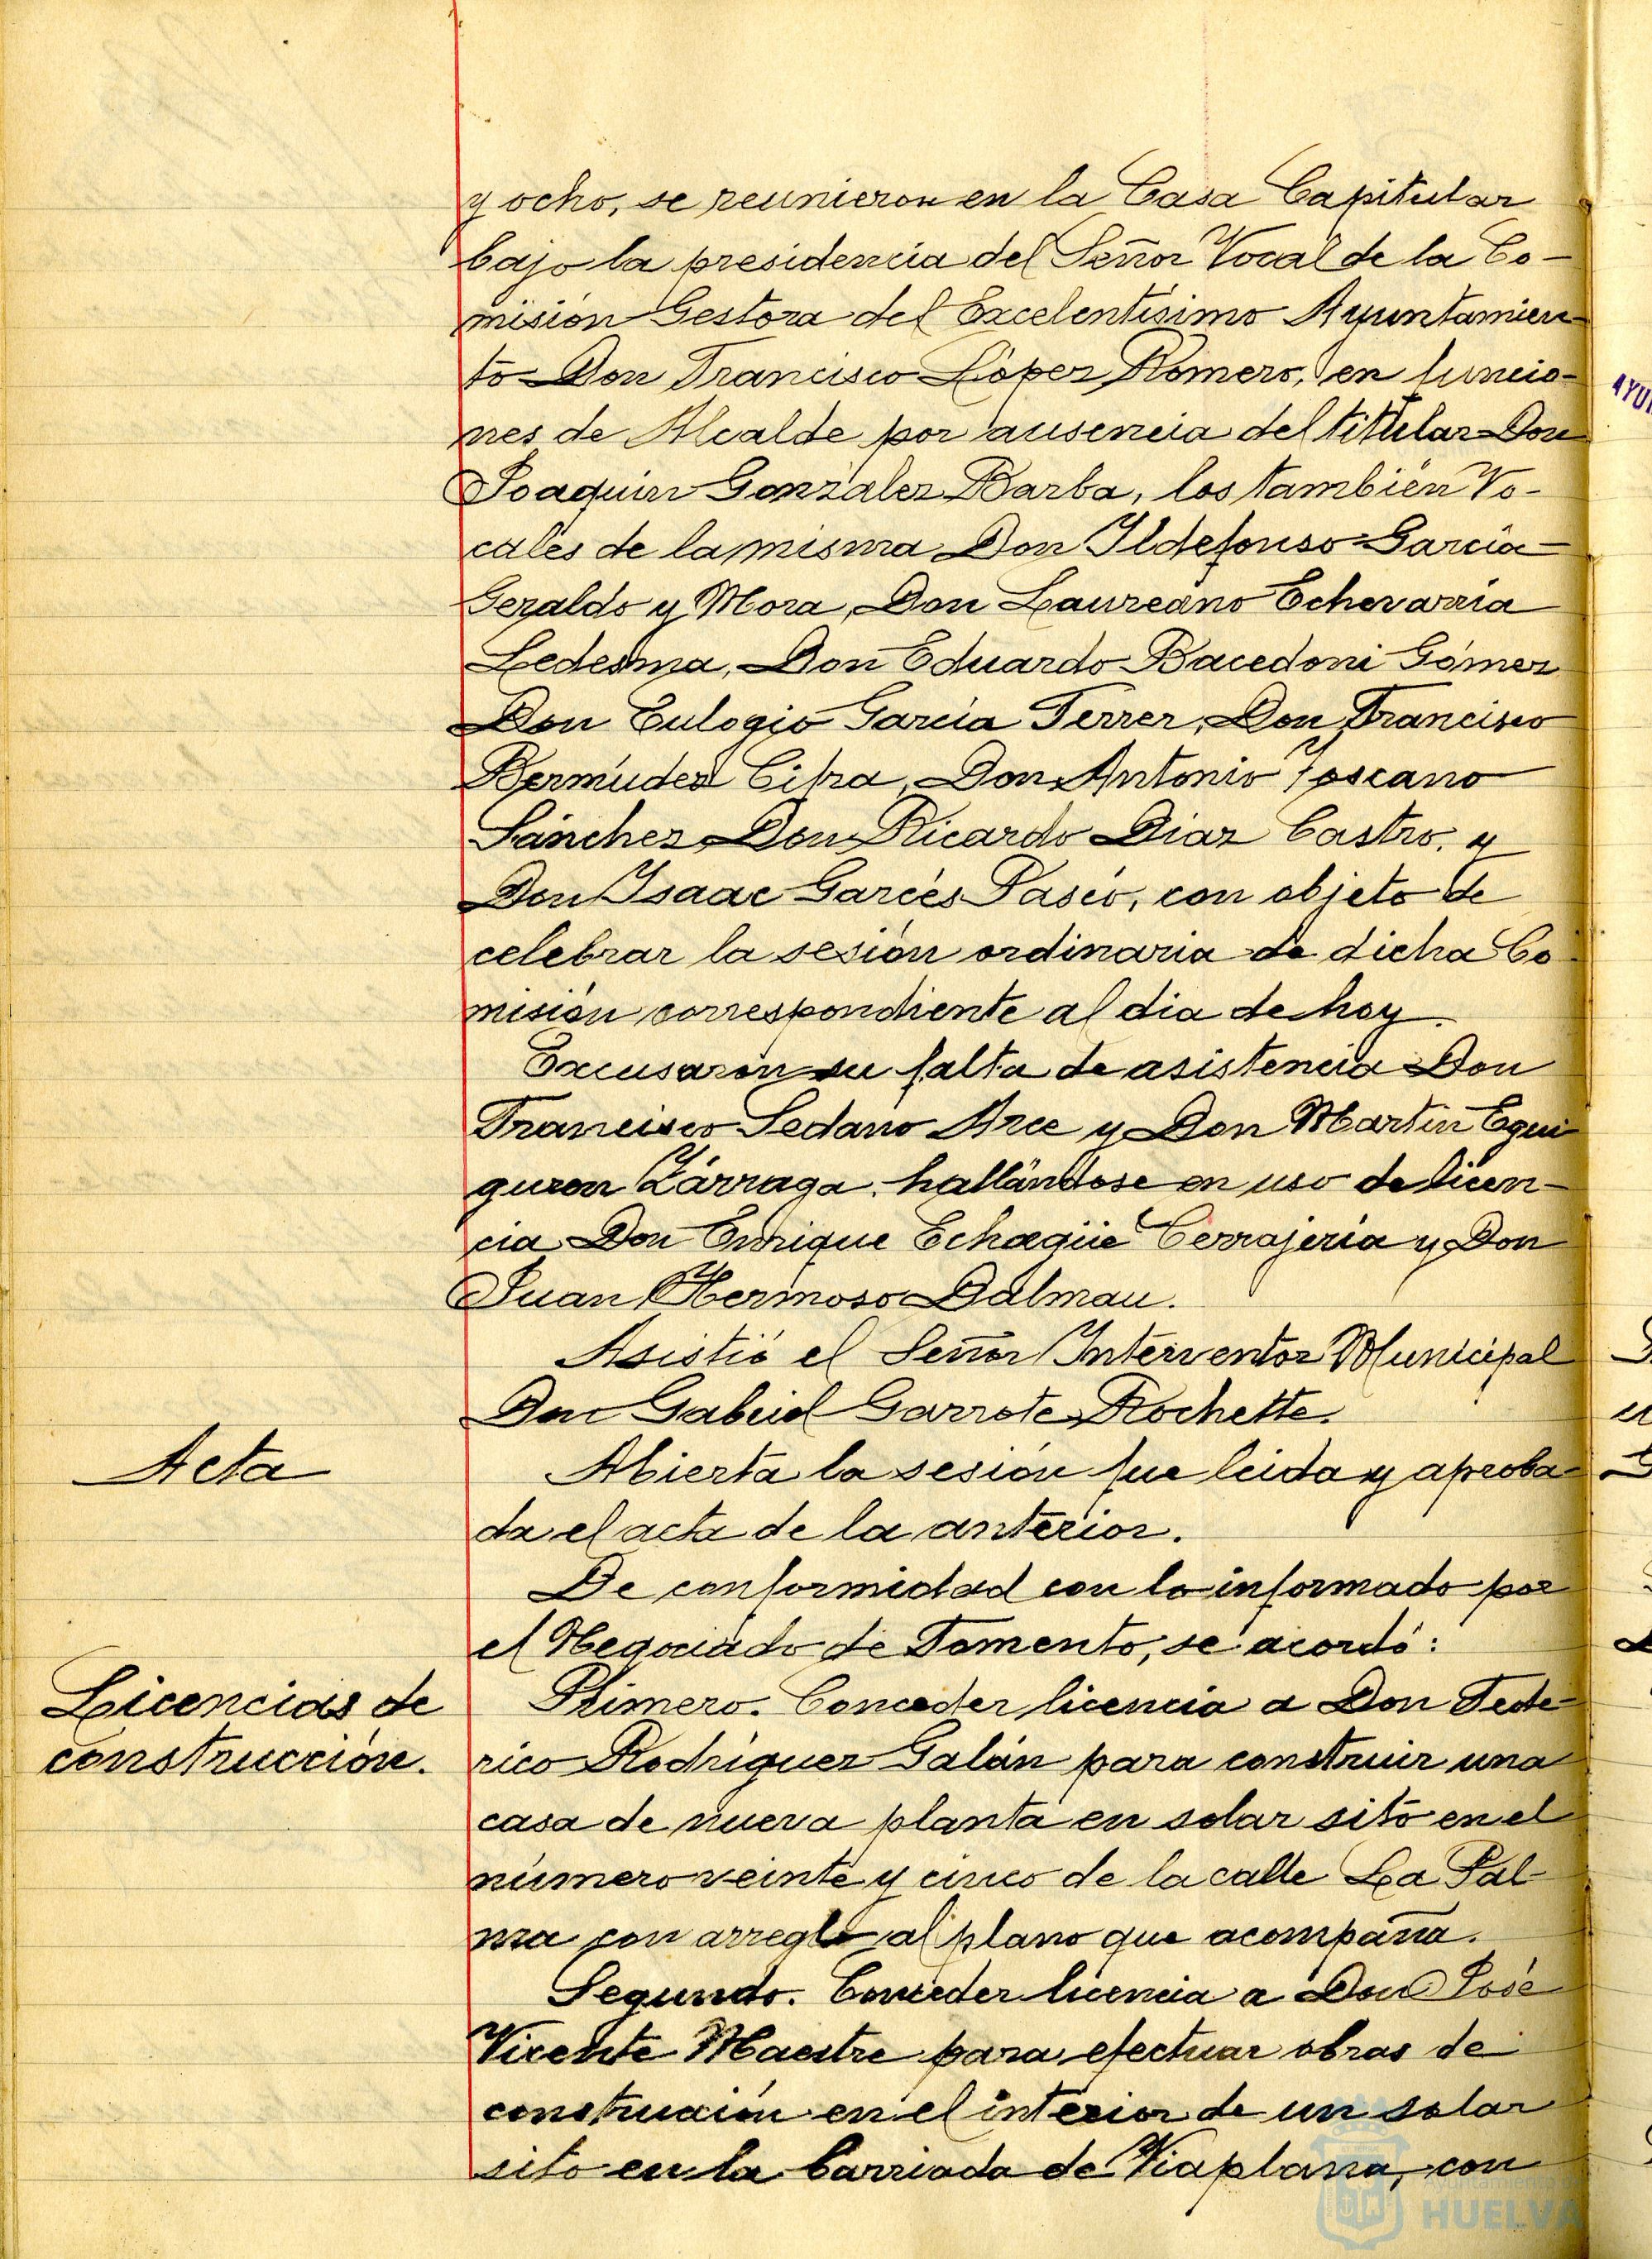 y ocho, se reunieron en la Casa Capitular
bajo la presidencia del Señor Vocal de la Co-
misión Gestora del Excelentísimo Ayuntamien-
to Don Francisco López Romero, en funcio-
nes de Alcalde por ausencia del titular Don
Joaquín González Barba, los también Vo-
cales de la misma Don Ildefonso García
Geraldo y Mora, Don Laureano Echevarría
Ledesma, Don Eduardo Bacedoni Gómez
Don Eulogio García Ferrer, Don Francisco
Bermúdez Cifra, Don Antonio Toscano
Sánchez, Don Ricardo Diaz Castro, y
Don Isaac Garcés Paseo, con objeto de
celebrar la sesión ordinaria de dicha Co-
misión correspondiente al dia de hoy.
Excusaron su falta de asistencia Don
Francisco Sedano Arce y Don Martín Egui-
guren Zárraga, hallándose en uso de licen-
cia Don Enrique Echagüe Cerrajería y Don
Juan Hermoso Dalmau.
Asistió el Señor Interventor Municipal
Don Gabriel Garrote Rochette.
Acta
Abierta la sesión fue leida y aproba-
da el acta de la anterior.
De conformidad con lo informado por
el Negociado de Fomento, se acordó:
Licencias de
construcción.
Primero. Conceder licencia a Don Fede-
rico Rodríguez Galán para construir una
casa de nueva planta en solar sito en el
número veinte y cinco de la calle La Pal-
ma con arreglo al plano que acompaña.
Segundo. Conceder licencia a Don José
Vicente Maestre para efectuar obras de
construcción en el interior de un solar
sito en la barriada de Viaplana, con
Ayuntamiento de
HUELVA